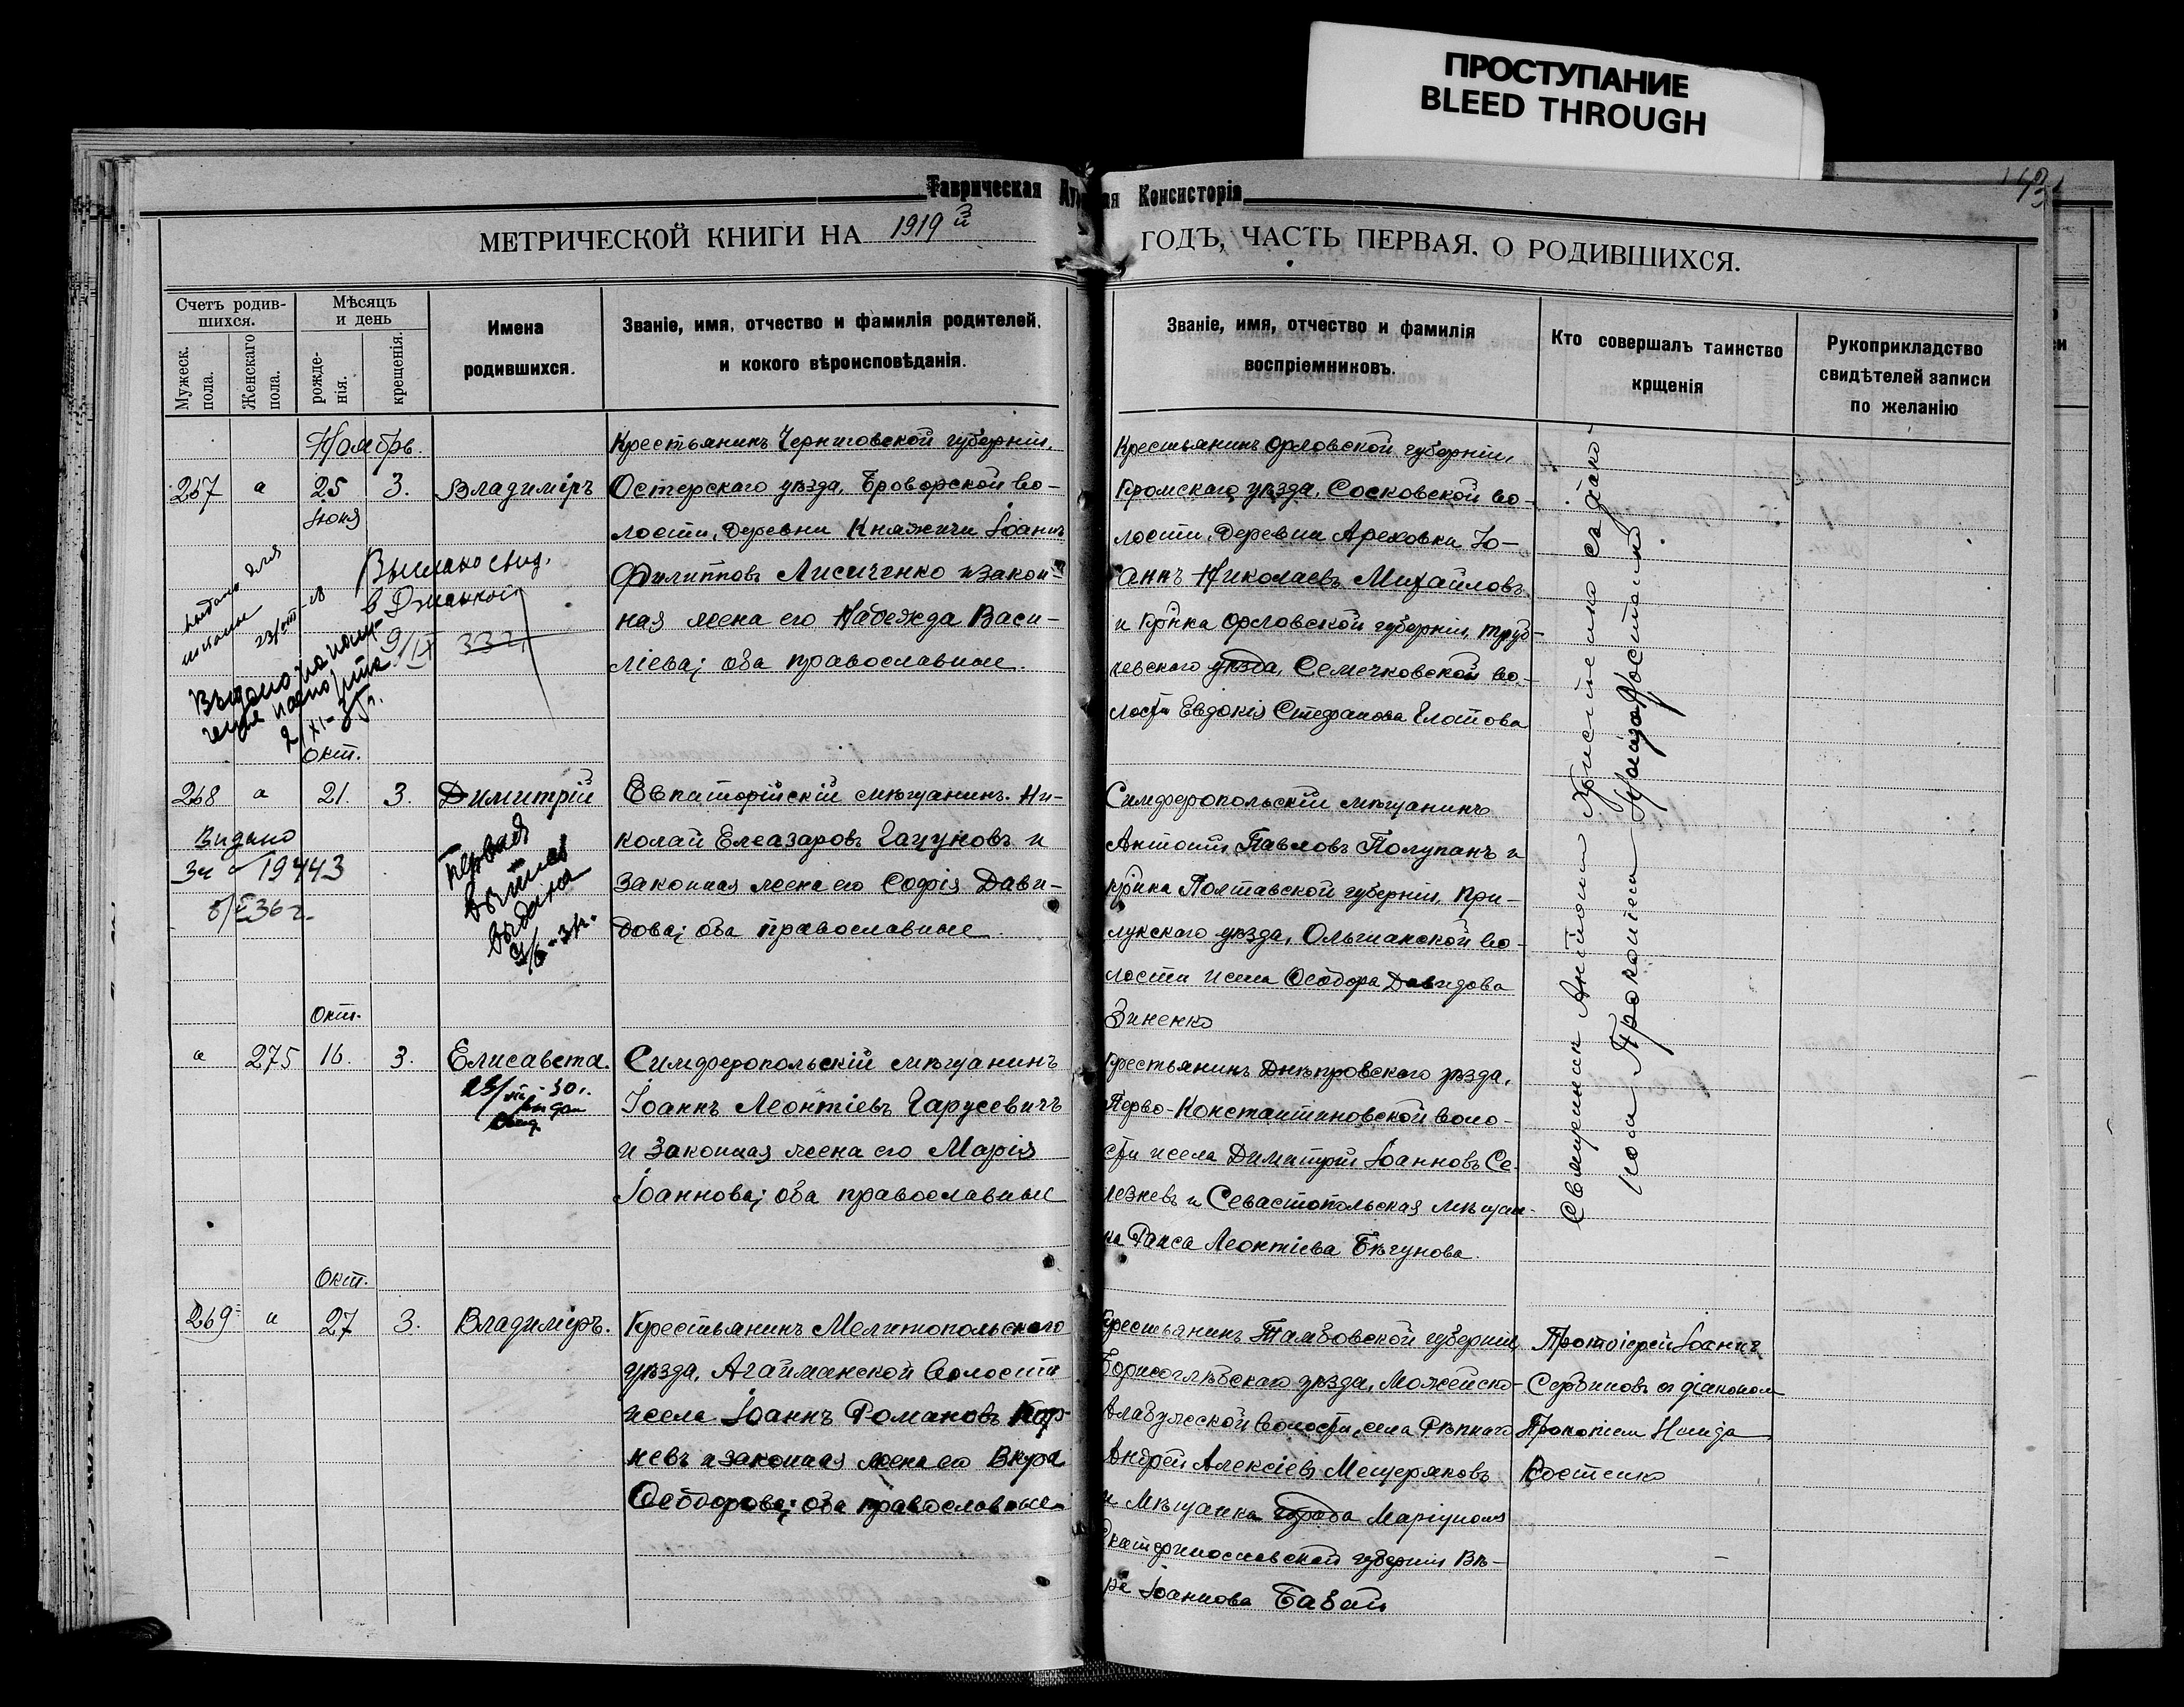 ПРОСТУПАНИЕ
BLEED THROUGH
Таврическая Ду ая Консисторія
МЕТРИЧЕСКОЙ КНИГИ НА 1919й ГОДЪ, ЧАСТЬ ПЕРВАЯ, О РОДИВШИХСЯ.
Счетъ родив-
шихся.
Мужеск.
пола.
Женскаго
пола.
Мѣсяцъ
и день
рожде-
нія.
крещенія.
Имена
родившихся.
Званіе, имя, отчество и фамилія родителей,
и кокого вѣроисповѣданія.
Званіе, имя, отчество и фамилія
воспріемниковъ.
Кто совершалъ таинство
крщенія
Рукоприкладство
свидѣтелей записи
по желанію
Ноябрь.
267 а 25 3. Владиміръ
Іюня
Крестьянинъ Черниговской губерніи,
Остерскаго уѣзда, Броворской во-
лости, деревни Княжичи Іоаннъ
Филипповъ Лисиченко и закон-
ная жена его Надежда Васи-
ліева; оба православные.
Крестьянинъ Орловской губерніи,
Кромскаго уѣзда, Сосковской во-
лости, деревни Ареховки Іо-
аннъ Николаевъ Михайловъ
и кр-нка Орловской губерніи, Труб-
чевскаго уѣзда, Семечковской во-
лости Евдокія Стефанова
Священник Антоній съ діако-
ном Прокопіем Костенко
выдано для
23/VIII-28
Выслано свид.
в Джанкой
9/IX 332
Выдано на полу-
чение паспорта
2/XI-35г.
Окт.
268 а 21. 3. Димитрій
Видано
Зч - 19443
36 г.
Первая
выпись
выдана
Евпаторійскій мѣщанинъ Ни-
колай Елеазаровъ Гагуновъ и
законная жена его Софія Дави-
дова; оба православные.
Симферопольскій мѣщанинъ
Антоній Павловъ Полупанъ и
кр-нка Полтавской губерніи, При-
лукскаго уѣзда, Ольшанской во-
лости и села Ѳеодора Давидова
Зиненко
Окт.
а 275 16. 3. Елисавета.
Симферопольскій мѣщанинъ
Іоаннъ Леонтіевъ Гарусевичъ
и законная жена его Марія
Іоаннова; оба православные
Крестьянинъ Днѣпровскаго уѣзда,
Перво-Константиновской воло-
сти и села Димитрій Іоанновъ Се-
лезневъ и Севастопольская мѣщан-
ка Раиса Леонтіева Бѣгунова.
Окт.
269 а 27 3. Владиміръ.
Крестьянинъ Мелитопольскаго
уѣзда, Агайманской волости
и села Іоаннъ Романовъ Кор-
невъ и законная жена его Вѣра
Ѳеодорова; оба православные
Крестьянинъ Тамбовской губерніи,
Борисоглѣбскаго уѣзда, Можейско-
Алабужской волости, села Рѣпнаго
Андрей Алексіевъ Мещеряковъ
и мѣщанка города Маріуполя
Екатеринославской губерніи Вѣ-
ра Іоаннова Бабай
Протоіерей Іоаннъ
Сербиновъ съ діакономъ
Прокопіем
Костенко